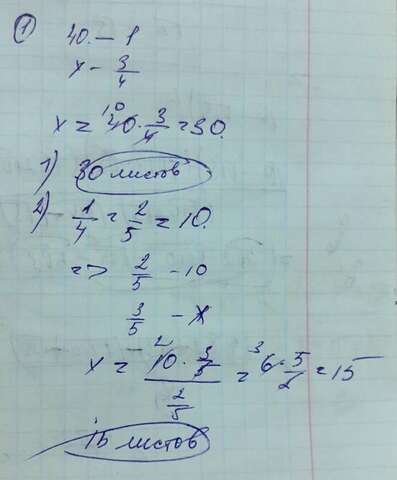 ① 40 – 1
x – 3/4
x = 40 · 3/4 = 30.
1) 30 листов
2) 1/4 = 2/5 = 10.
=> 2/5 – 10
3/5 – x
x = (10 · 3/5)/(2/5) = 6 · 5/2 = 15
15 листов